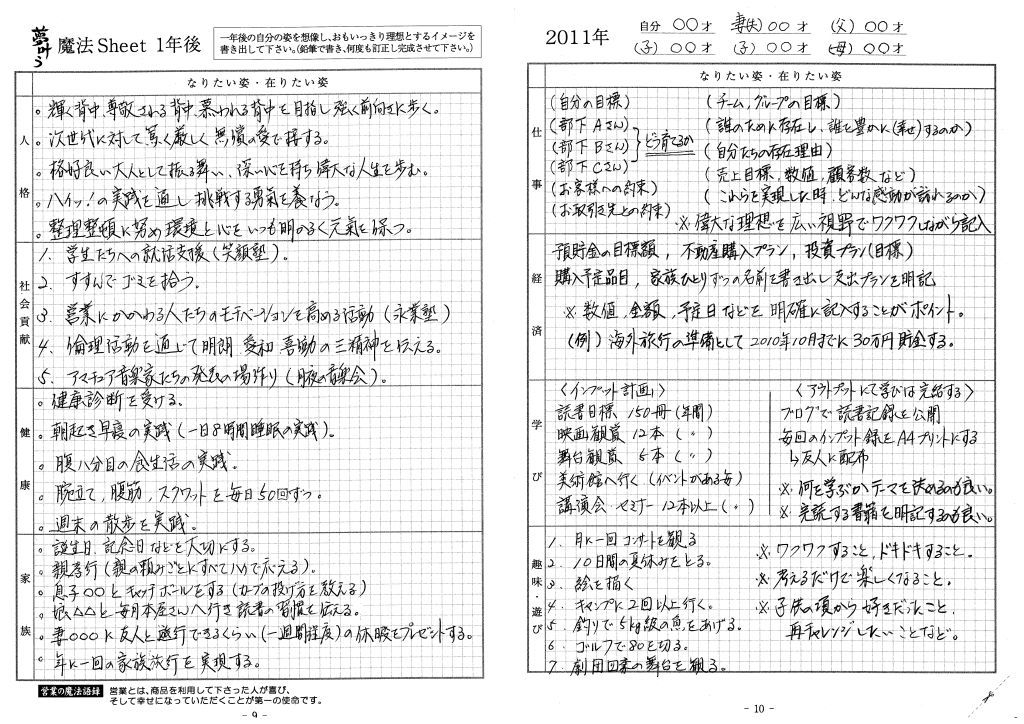 夢叶う 魔法Sheet 1年後
一年後の自分の姿を想像し、おもいっきり理想とするイメージを
書き出して下さい。(鉛筆で書き、何度も訂正し完成させて下さい。)
なりたい姿・在りたい姿
人格
。輝く背中、尊敬される背中、慕われる背中を目指し強く前向きに歩く。
。次世代に対して篤く厳しく無償の愛で接する。
。格好良い大人として振る舞い、深い心を持ち偉大な人生を歩む。
。ハイッ!の実践を通し挑戦する勇気を養なう。
。整理整頓に努め環境と心をいつも明るく元気を保つ。
社会貢献
1. 学生たちへの就活支援(笑顔塾)。
2. すすんでゴミを拾う。
3. 営業にかかわる人たちのモチベーションを高める活動(永業塾)
4. 倫理活動を通じて明朗 愛和 喜働の三精神を伝える。
5. アマチュア音楽家たちの発表の場作り(月夜の音楽会)。
健康
。健康診断を受ける。
。朝起き早寝の実践(一日8時間睡眠の実践)。
。腹八分目の食生活の実践。
。腕立て,腹筋,スクワットを毎日50回ずつ。
。週末の散歩を実践。
家族
。誕生日、記念日などを大切にする。
。親孝行(親の頼みごとにすべてハイで応える)。
。息子〇〇とキャッチボールをする(カーブの投げ方を教える)
。娘△△と毎月本屋さんへ行き読書の習慣を伝える。
。妻〇〇〇に友人と旅行できるくらい(一週間程度)の休暇をプレゼントする。
。年に一回の家族旅行を実現する。
営業の魔法語録 営業とは、商品を利用して下さった人が喜び、
そして幸せになっていただくことが第一の使命です。
- 9 -
2011年
自分 〇〇才 妻(夫)〇〇才 (父)〇〇才
(子)〇〇才 (子)〇〇才 (母)〇〇才
なりたい姿・在りたい姿
仕事
(自分の目標) (チーム,グループの目標)
(部下Aさん) (誰のために存在し、誰を豊かに(幸せ)するのか)
(部下Bさん) どう育てるか (自分たちの存在理由)
(部下Cさん) (売上目標,数値,顧客数など)
(お客様への約束) (これらを実現した時、どんな感動が訪れるのか)
(お取引き先との約束) ※偉大な理想を広い視野でワクワクしながら記入
経済
預貯金の目標額,不動産購入プラン,投資プラン(目標)
購入予定品目,家族ひとりずつの名前を書き出し支出プランを明記
※ 数値,金額,予定日などを明確に記入することがポイント。
(例)海外旅行の準備として2010年10月までに30万円貯金する。
学び
〈インプット計画〉 〈アウトプットにて学びは完結する〉
読書目標 150冊(年間) ブログで読書記録を公開
映画観賞 12本(〃) 毎回のインプット録をA4プリントにする
舞台観賞 6本(〃) ↳友人に配布
美術館へ行く(イベントがある毎) ※何を学ぶかテーマを決めるのも良い。
講演会・セミナー12本以上(〃) ※完読する書籍を明記するのも良い。
趣味・遊び
1. 月に一回コンサートを観る
2. 10日間の夏休みをとる。 ※ワクワクすること,ドキドキすること。
3. 絵を描く ※考えるだけで楽しくなること。
4. キャンプに2回以上行く。 ※子供の頃から好きだったこと,
5. 釣りで5kg級の魚をあげる。 再チャレンジしたいことなど。
6. ゴルフで80を切る。
7. 劇団四季の舞台を観る。
- 10 -